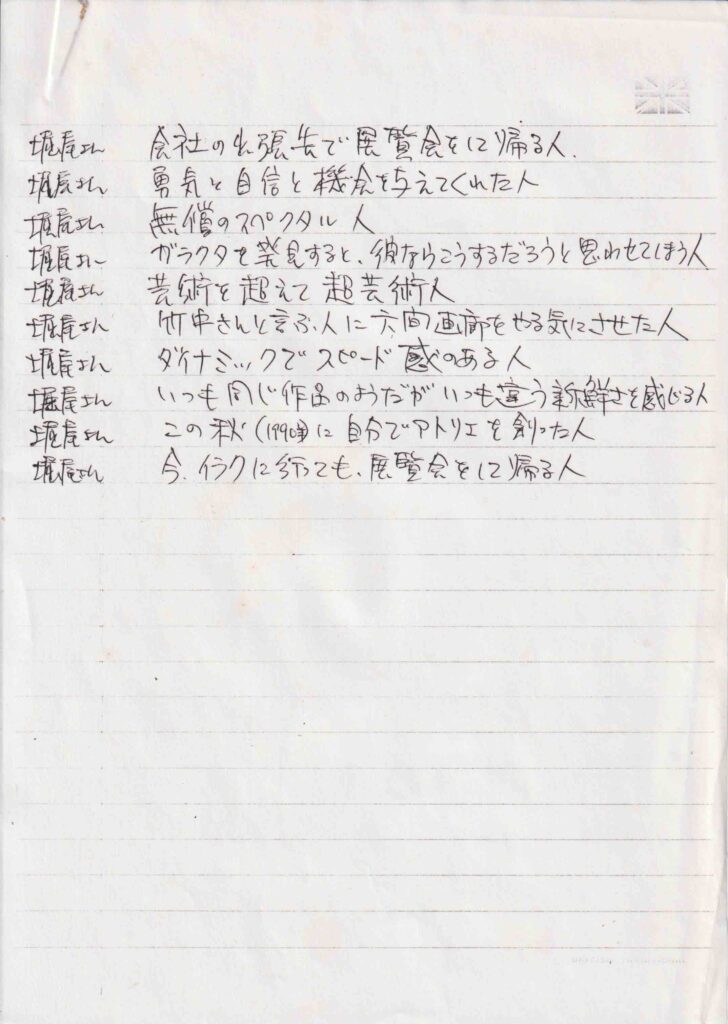 堀尾さん 会社の出張先で展覧会をして帰る人.
堀尾さん 勇気と自信と機会を与えてくれた人
堀尾さん 無償のスペクタル人
堀尾さん ガラクタを発見すると、彼ならこうするだろうと思わせてしまう人
堀尾さん 芸術を超えて超芸術人
堀尾さん 竹中さんと言ふ人に六間画廊をやる気にさせた人
堀尾さん ダイナミックでスピード感のある人
堀尾さん いつも同じ作品のようだがいつも違う新鮮さを感じる人
堀尾さん この秋(1990年)に自分でアトリエを創った人
堀尾さん 今、イラクに行っても、展覧会をして帰る人